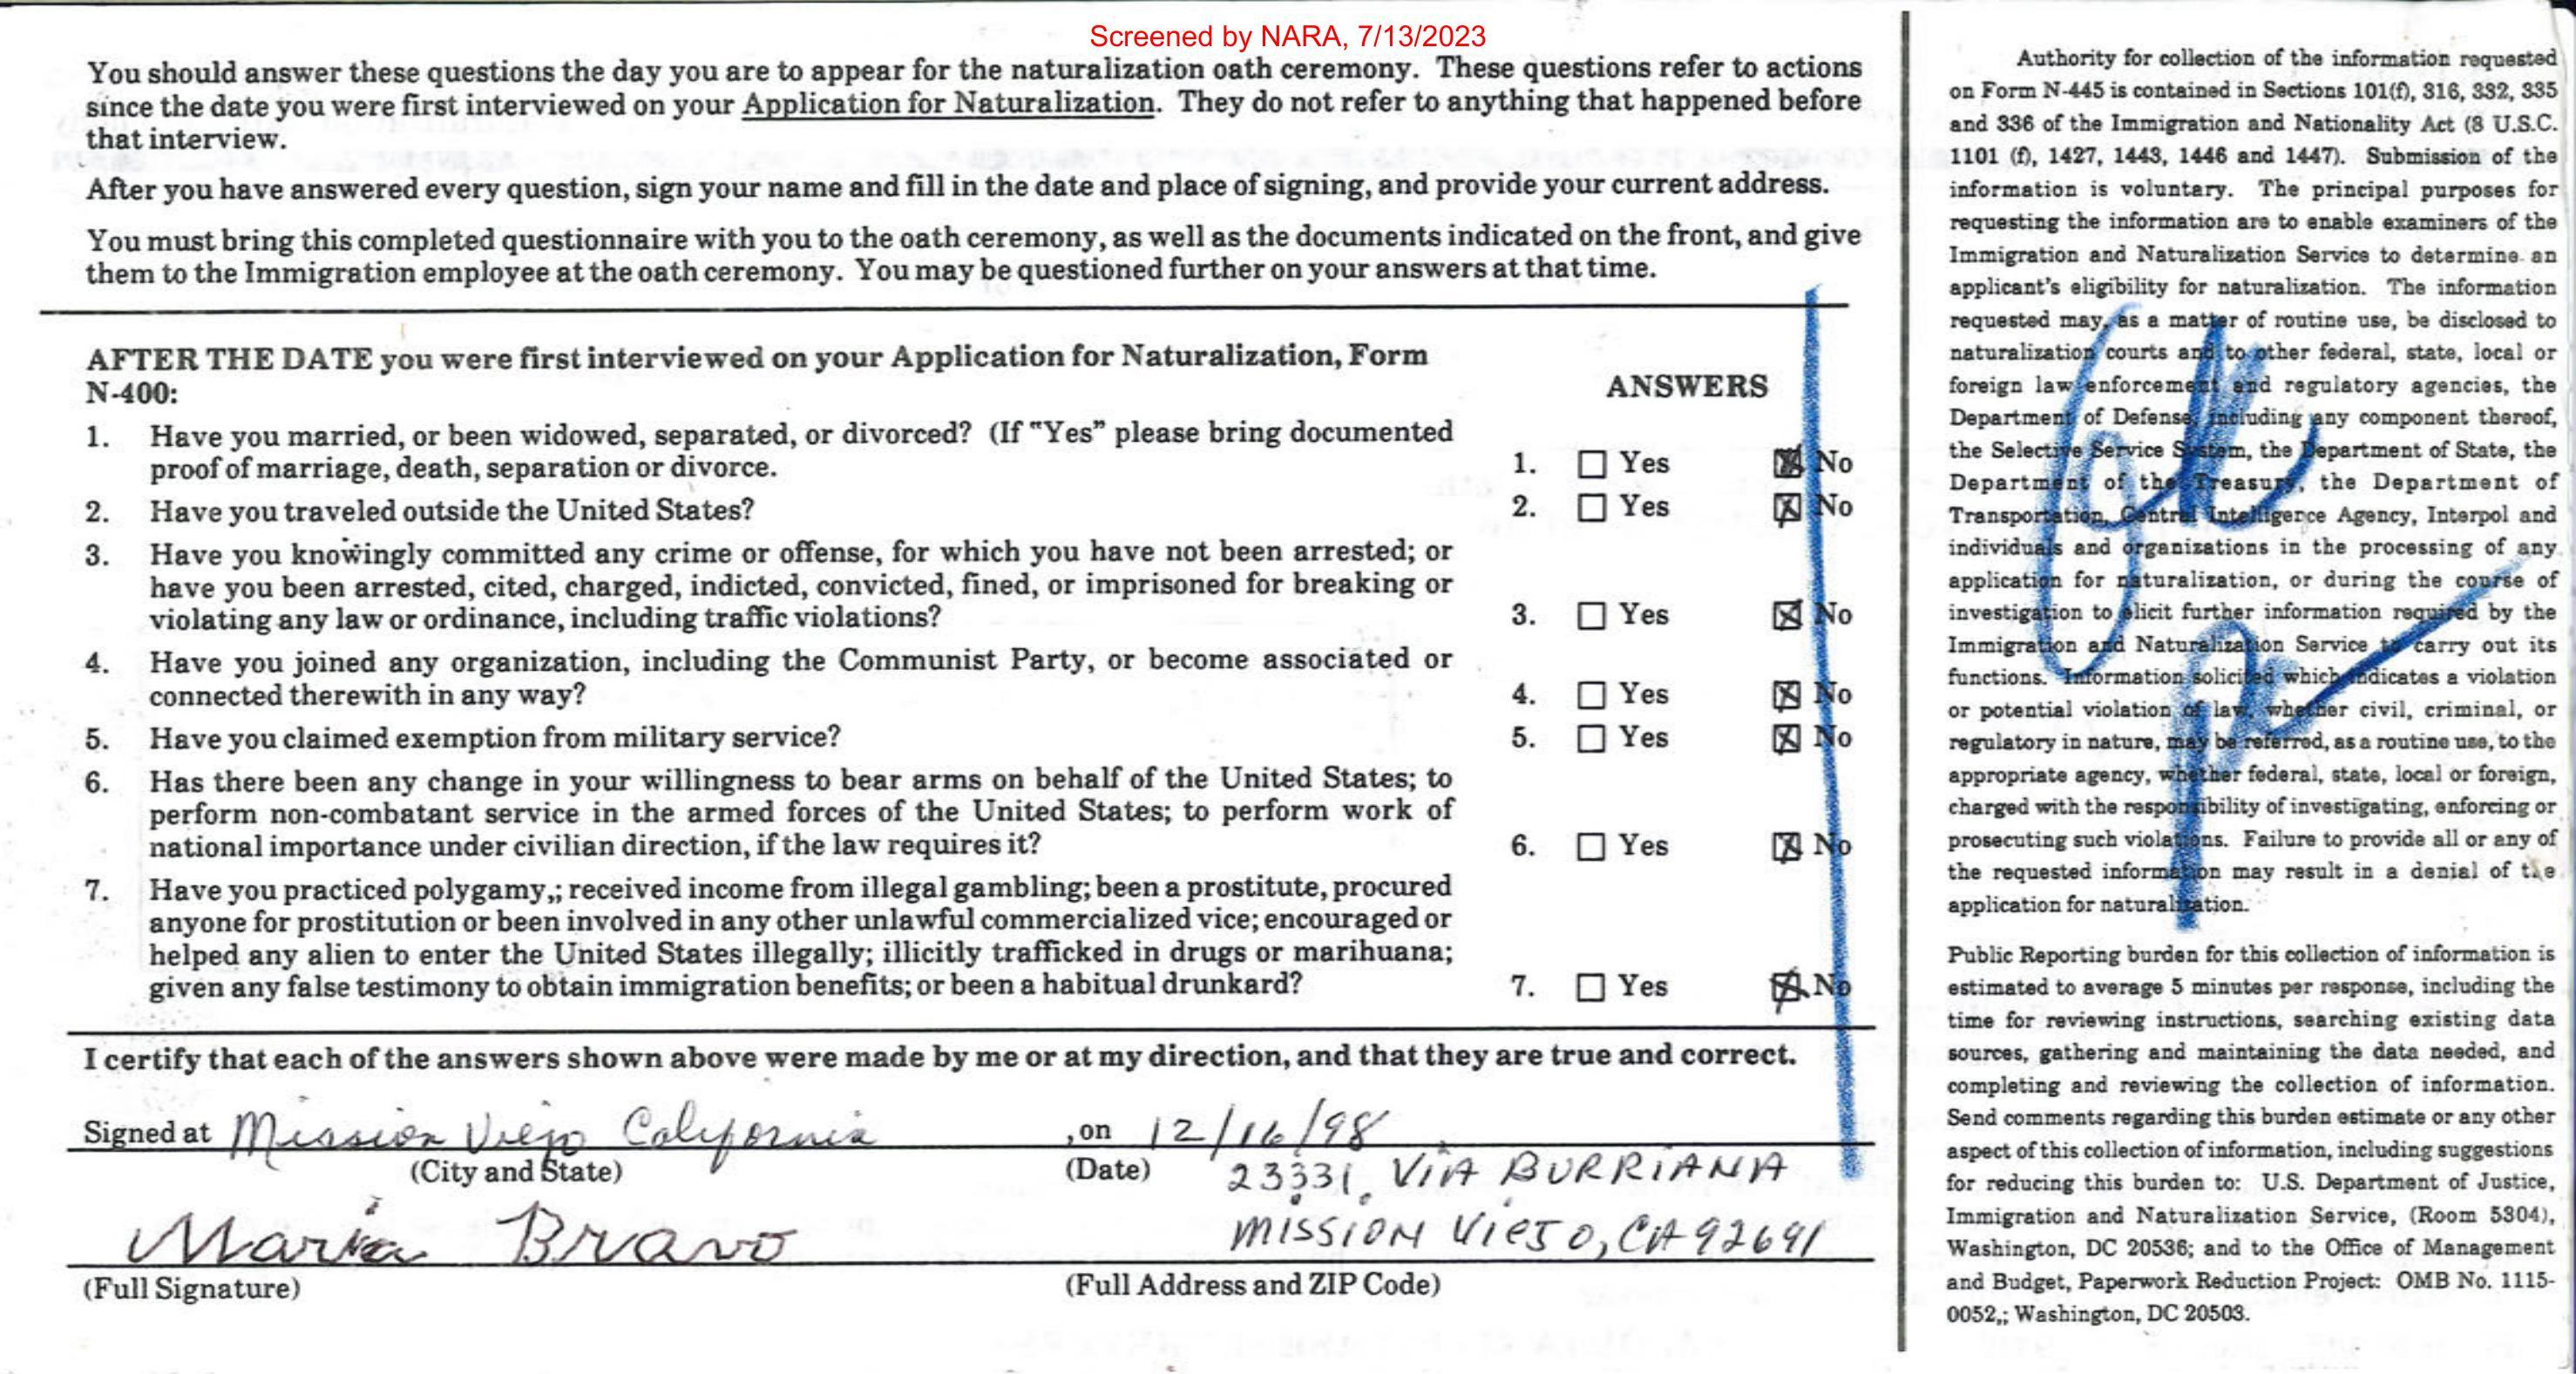 Screened by NARA, 7/13/2023
You should answer these questions the day you are to appear for the naturalization oath ceremony. These questions refer to actions
since the date you were first interviewed on your Application for Naturalization. They do not refer to anything that happened before
that interview.
After you have answered every question, sign your name and fill in the date and place of signing, and provide your current address.
You must bring this completed questionnaire with you to the oath ceremony, as well as the documents indicated on the front, and give
them to the Immigration employee at the oath ceremony. You may be questioned further on your answers at that time.
AFTER THE DATE you were first interviewed on your Application for Naturalization, Form
N-400:
ANSWERS
1. Have you married, or been widowed, separated, or divorced? (If "Yes" please bring documented
proof of marriage, death, separation or divorce.
1. ☐ Yes ☒ No
2. Have you traveled outside the United States?
2. ☐ Yes ☒ No
3. Have you knowingly committed any crime or offense, for which you have not been arrested; or
have you been arrested, cited, charged, indicted, convicted, fined, or imprisoned for breaking or
violating any law or ordinance, including traffic violations?
3. ☐ Yes ☒ No
4. Have you joined any organization, including the Communist Party, or become associated or
connected therewith in any way?
4. ☐ Yes ☒ No
5. Have you claimed exemption from military service?
5. ☐ Yes ☒ No
6. Has there been any change in your willingness to bear arms on behalf of the United States; to
perform non-combatant service in the armed forces of the United States; to perform work of
national importance under civilian direction, if the law requires it?
6. ☐ Yes ☒ No
7. Have you practiced polygamy,; received income from illegal gambling; been a prostitute, procured
anyone for prostitution or been involved in any other unlawful commercialized vice; encouraged or
helped any alien to enter the United States illegally; illicitly trafficked in drugs or marihuana;
given any false testimony to obtain immigration benefits; or been a habitual drunkard?
7. ☐ Yes ☒ No
I certify that each of the answers shown above were made by me or at my direction, and that they are true and correct.
Signed at Mission Viejo California , on 12/16/98
(City and State) (Date)
23331, ViA BURRiANA
Maria Bravo
MISSION VieJO, CA 92691
(Full Signature) (Full Address and ZIP Code)
Authority for collection of the information requested
on Form N-445 is contained in Sections 101(f), 316, 332, 335
and 336 of the Immigration and Nationality Act (8 U.S.C.
1101 (f), 1427, 1443, 1446 and 1447). Submission of the
information is voluntary. The principal purposes for
requesting the information are to enable examiners of the
Immigration and Naturalization Service to determine an
applicant's eligibility for naturalization. The information
requested may, as a matter of routine use, be disclosed to
naturalization courts and to other federal, state, local or
foreign law enforcement and regulatory agencies, the
Department of Defense, including any component thereof,
the Selective Service System, the Department of State, the
Department of the Treasury, the Department of
Transportation, Central Intelligence Agency, Interpol and
individuals and organizations in the processing of any
application for naturalization, or during the course of
investigation to elicit further information required by the
Immigration and Naturalization Service to carry out its
functions. Information solicited which indicates a violation
or potential violation of law, whether civil, criminal, or
regulatory in nature, may be referred, as a routine use, to the
appropriate agency, whether federal, state, local or foreign,
charged with the responsibility of investigating, enforcing or
prosecuting such violations. Failure to provide all or any of
the requested information may result in a denial of the
application for naturalization.
Public Reporting burden for this collection of information is
estimated to average 5 minutes per response, including the
time for reviewing instructions, searching existing data
sources, gathering and maintaining the data needed, and
completing and reviewing the collection of information.
Send comments regarding this burden estimate or any other
aspect of this collection of information, including suggestions
for reducing this burden to: U.S. Department of Justice,
Immigration and Naturalization Service, (Room 5304),
Washington, DC 20536; and to the Office of Management
and Budget, Paperwork Reduction Project: OMB No. 1115-
0052,; Washington, DC 20503.